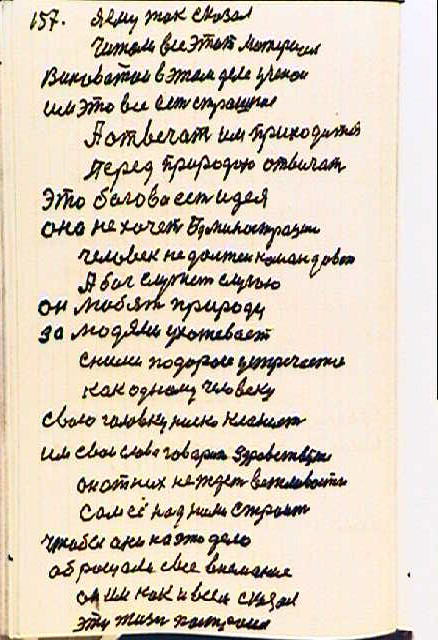 157. Я ему так сказал
Читал все этот материал
Виноватой в этом деле ученои
им это все есть страшное
А отвечать им приходится
Перед Природою отвичать
Это богова есть идея
оно не хочет Администрации
человек не должен командовать
А бог служит случою
он любят природу
за людями ухожевает
сними по дороге устречаетя
как одному человеку
свою головку ниско кланяит
им свои слова говорит здравствуйте
он от них не ждет вежливости
сам её над ними строит
чтобы они на это дело
обросчали свое внемание
он им как и всем сказал
эту жизнь построил